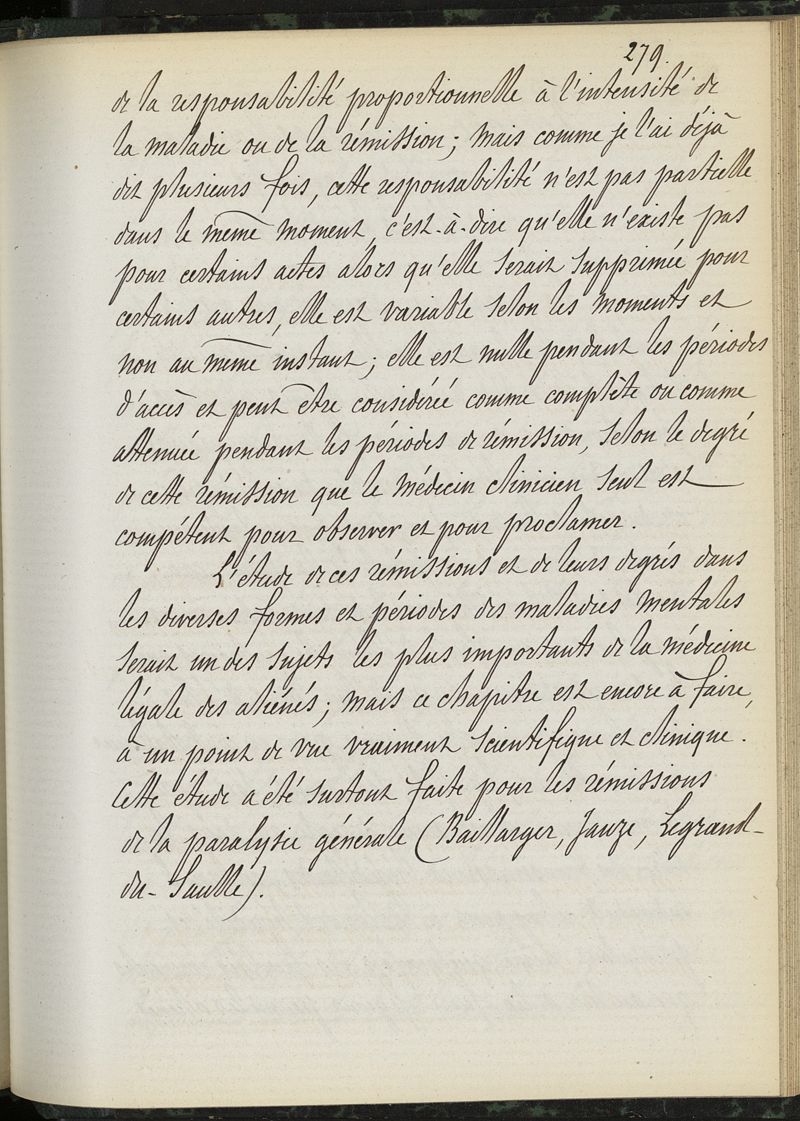 279.
de la responsabilité proportionnelle à l'intensité de
la maladie ou de la rémission; mais comme je l'ai déjà
dit plusieurs fois, cette responsabilité n'est pas partielle
dans le même moment, c'est-à-dire qu'elle n'existe pas
pour certains actes alors qu'elle serait supprimée pour
certains autres, elle est variable selon les moments et
non au même instant; elle est nulle pendant les périodes
d'accès et peut être considérée comme complète ou comme
atténuée pendant les périodes de rémission, selon le degré
de cette rémission que le médecin clinicien seul est
compétent pour observer et pour proclamer.
L'étude de ces rémissions et de leurs degrés dans
les diverses formes et périodes des maladies mentales
serait un des sujets les plus importants de la médecine
légale des aliénés; mais ce chapitre est encore à faire,
à un point de vue vraiment scientifique et clinique.
Cette étude a été surtout faite pour les rémissions
de la paralysie générale (Baillarger, Sauze, Legrand-
du-Saulle).